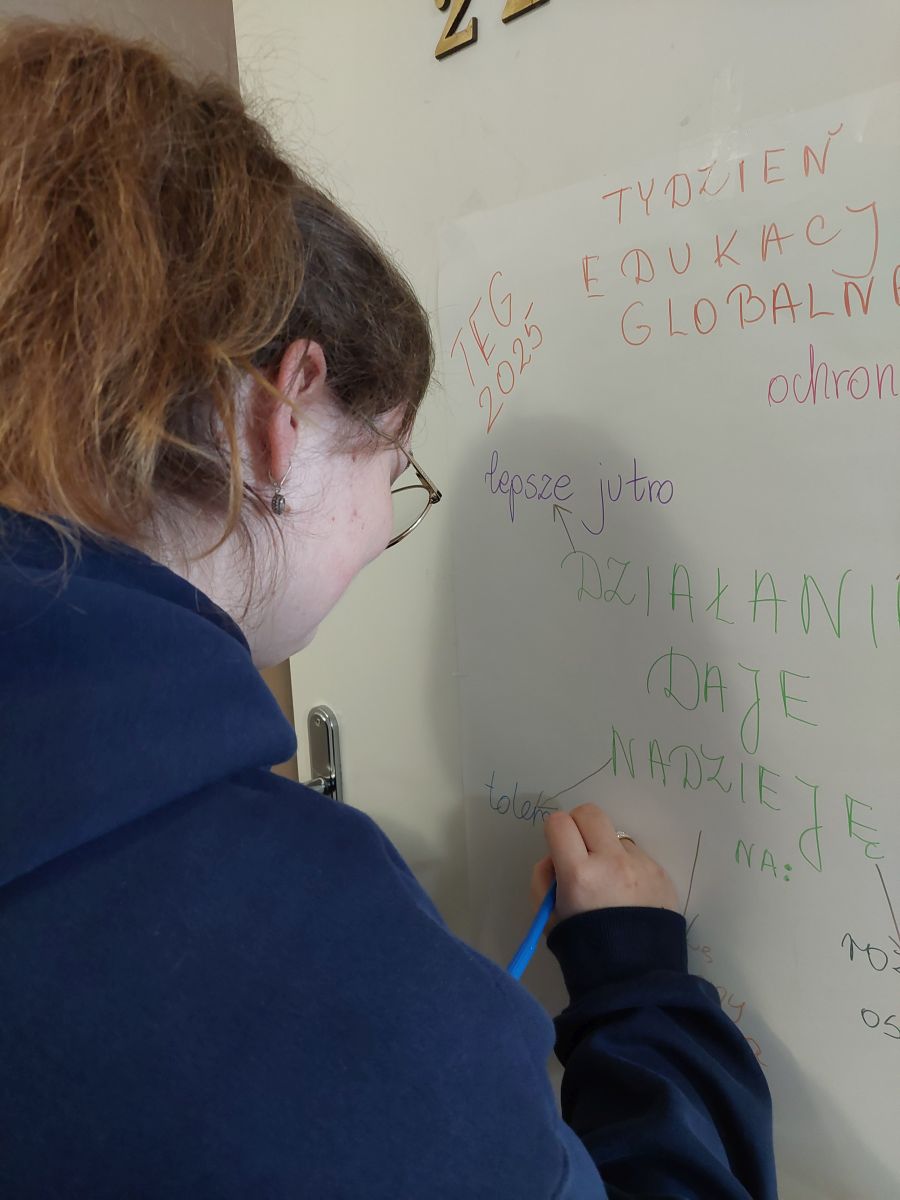 TYDZIEŃ
EDUKACJ
GLOBALNE
TEG
2025
ochron
lepsze jutro
DZIAŁANIE
DAJE
NADZIEJĘ
NA:
toler